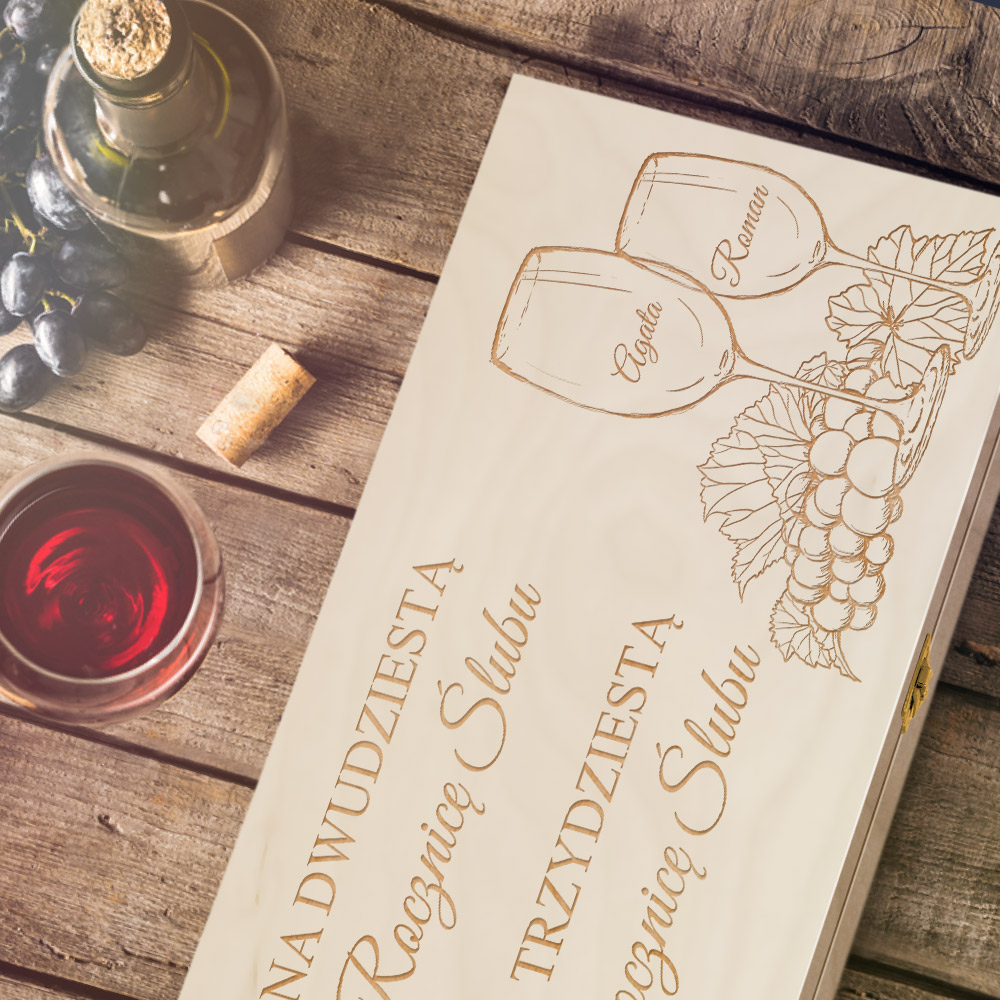 Roman
Agata
NA DWUDZIESTĄ
Rocznicę Ślubu
TRZYDZIESTĄ
Rocznicę Ślubu